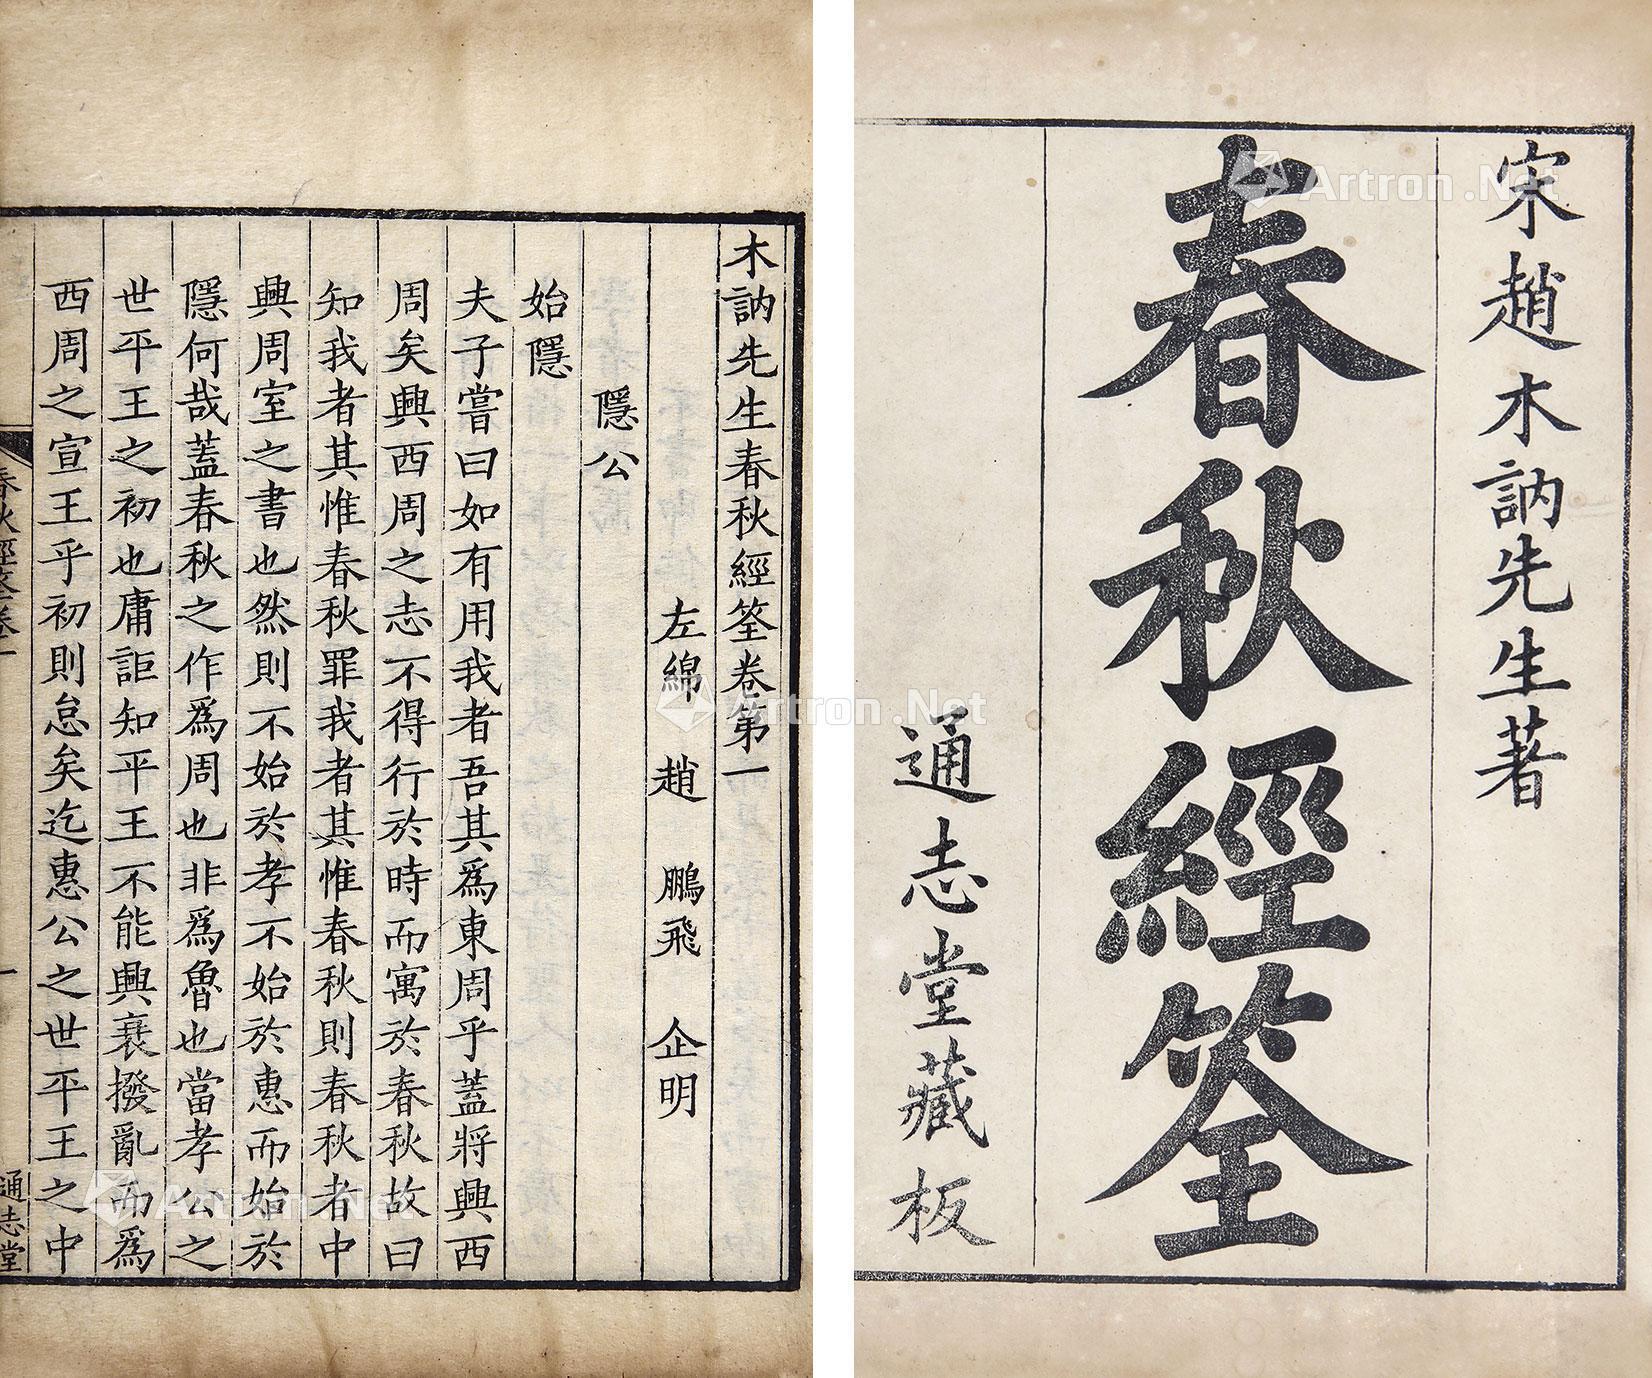 宋趙木訥先生著
春秋經筌
通志堂藏板
木訥先生春秋經筌卷第一
左綿 趙 鵬飛 企明
隱公
始隱
夫子嘗曰如有用我者吾其爲東周乎蓋將興西
周矣興西周之志不得行於時而寓於春秋故曰
知我者其惟春秋罪我者其惟春秋則春秋者中
興周室之書也然則不始於孝不始於惠而始於
隱何哉蓋春秋之作爲周也非爲魯也當孝公之
世平王之初也庸詎知平王不能興衰撥亂而爲
西周之宣王乎初則怠矣迄惠公之世平王之中
春秋經筌卷一
一
通志堂
Artron.Net
Artron.Net
Artron.Net